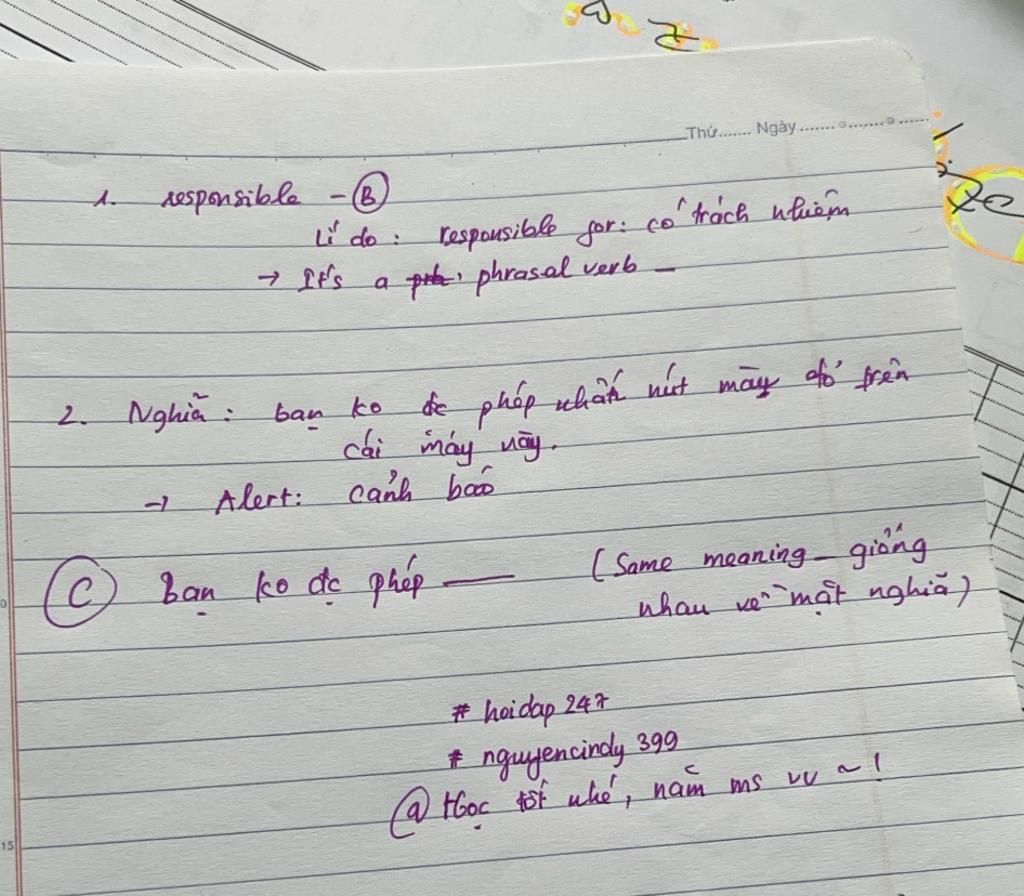 Thứ....... Ngày
1. responsible - B
Lí do : responsible for: có trách nhiêm
→ It's a phrasal verb
2. Nghiã : bạn ko đc phép nhấn nút mày đó trên
cái máy này.
→ Alert: cảnh báo
C Bạn ko đc phép (Same meaning - giống
nhau về mặt nghiã)
# hoidap 247
# nguyencindy 399
@ Học tốt nhé, năm ms vv ~ !
15